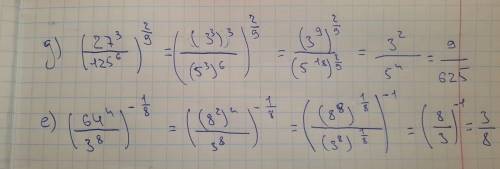 g) (27³/125⁶)^(2/9) = ((3³)³/(5³)⁶)^(2/9) = (3⁹)^(2/9)/(5¹⁸)^(2/9) = 3²/5⁴ = 9/625
e) (64⁴/3⁸)^(-1/8) = ((8²)⁴/3⁸)^(-1/8) = ((8⁸)^(1/8)/(3⁸)^(1/8))^(-1) = (8/3)^(-1) = 3/8